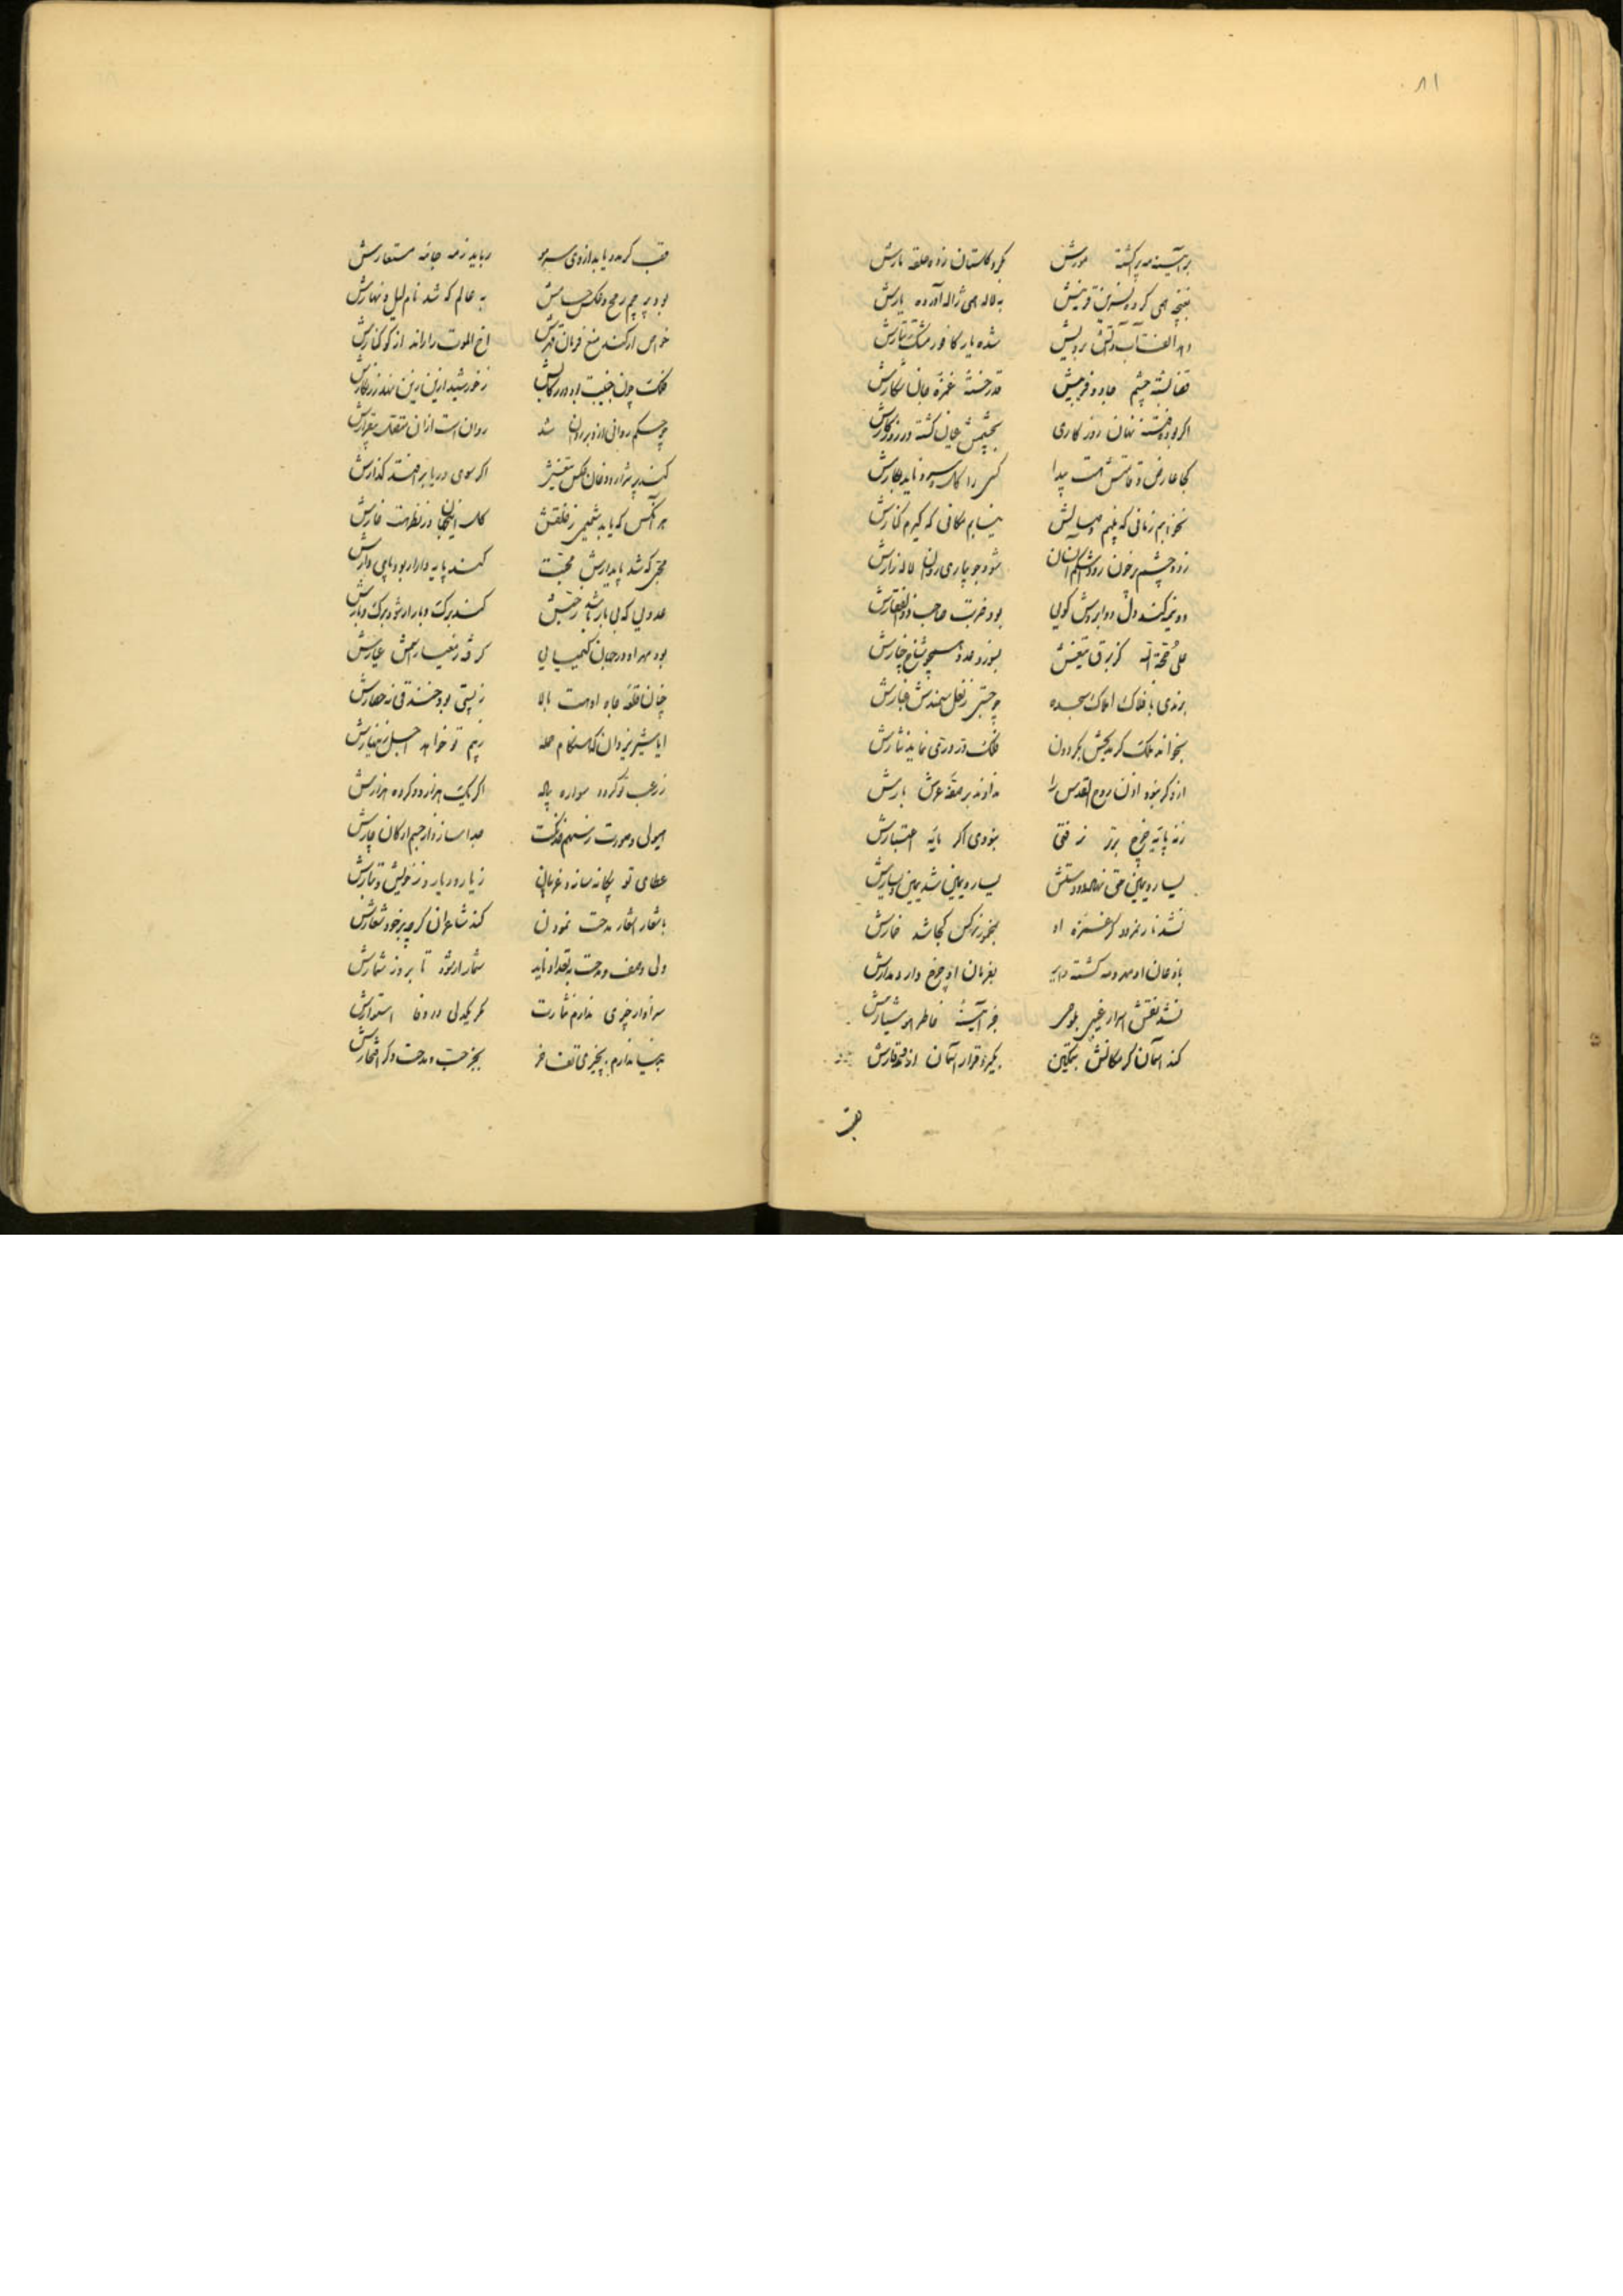 ۸۱
بر آئینه مه پر گشته مورش بگرد گلستان زده حلقه مارش
بغنچه همی کرده نسرین قرینش به لاله همی ژاله آورده بارش
دهد الفت آب و آتش برویش شده یار کافور مشک تتارش
قضا بسته چشم جادو فریبش قدر خسته غمزه جان شکارش
اگر بود فتنه نهان روزگاری بچشمش عیان گشته در روزگارش
کجا عارض و قامتش هست پیدا کسی را گل و سرو ناید بکارش
نخواهم زمانی که بینم وصالش نیابم مکانی که گیرم کنارش
زده چشم پرخون رود اشکم آنسان شود جویباری روان لاله زارش
دو نیمه کند دل دو ابروش گویی بود ضربت صاحب ذوالفقارش
علی حجة الله کز برق تیغش بسوزد عدو همچو شاخ چنارش
برندی با فلاک املاک سجده چو جستی ز نعل سمندش غبارش
بخواند ملک گر مدیحش بگردون فلک در و دری نماید نثارش
ازو گر نبود اذن روح القدس را ندادند بر صفه عرش بارش
زنه پایه چرخ برتر نرفتی نبودی اگر پایه اعتبارش
یسار و یمین حق نهاد و دستش یسار و یمین شد یمین و یسارش
نشد نار نمرود گر غمزه او بنمرود نرگس کجا شد خمارش
باذعان او مهر و مه گشته دایر بفرمان او چرخ دارد مدارش
نشد نقش اسرار غیبی بلوحی جز آئینه خاطر هوشیارش
کند آسمان گر مکانش بتمکین بگیرد قرار آسمان از وقارش
بقب
قصب گر مدد یابد از وی سر مو رباید ز مه جامه مستعارش
بود پرچم رمح و عکس حسامش به عالم که شد نام لیل و نهارش
خواص ار کند منع فرمان قهرش اخ الموت را راند از کوکنارش
فلک چون جنیبت بود در رکابش ز خورشید ازین زرین نهد زر نگارش
چو حکم روانی ازو بر روان شد روان است ازان منفعت بیقرارش
کند پر شراره و دخان عکس تیغش اگر سوی دریا برافتد گذارش
هر آنکس که یابد شمیمی ز خلقش گل این جهان در نظر هست خارش
محبی که شد پایدارش محبت کند پایه دارا ر بود پای دارش
عدویی که بی بار باشد درختش کند برگ و بار ار شود برگ و بارش
بود مهر او در جهان کیمیایی که قدر معیار مس عیارش
چنان قلعه جاه او هست بالا ز پستی بود خندقی نه حصارش
ایا شیر یزدان که هنگام حمله ز بیم تو خواهد اجل زینهارش
ز رعب تو گردد سواره پیاده اگر یک هزار و دو کرده هزارش
هیولی و صورت ز سهم خدنگت جدا سازد از جسم ارکان چارش
عطای تو بیگانه سازد غریبان ز یار و دیار و ز خویش و تبارش
باشعار اشعار مدحت نمودن کند شاعران گرچه برخود شعارش
ولی وصف و مدحت بتعداد ناید شمار ار شود تا بروز شمارش
سزاوار چیزی ندارم نثارت مگر یکدلی در وفا استوارش
بدنیا ندارم بچیزی تفاخر بجز حب و مدحت دگر افتخارش